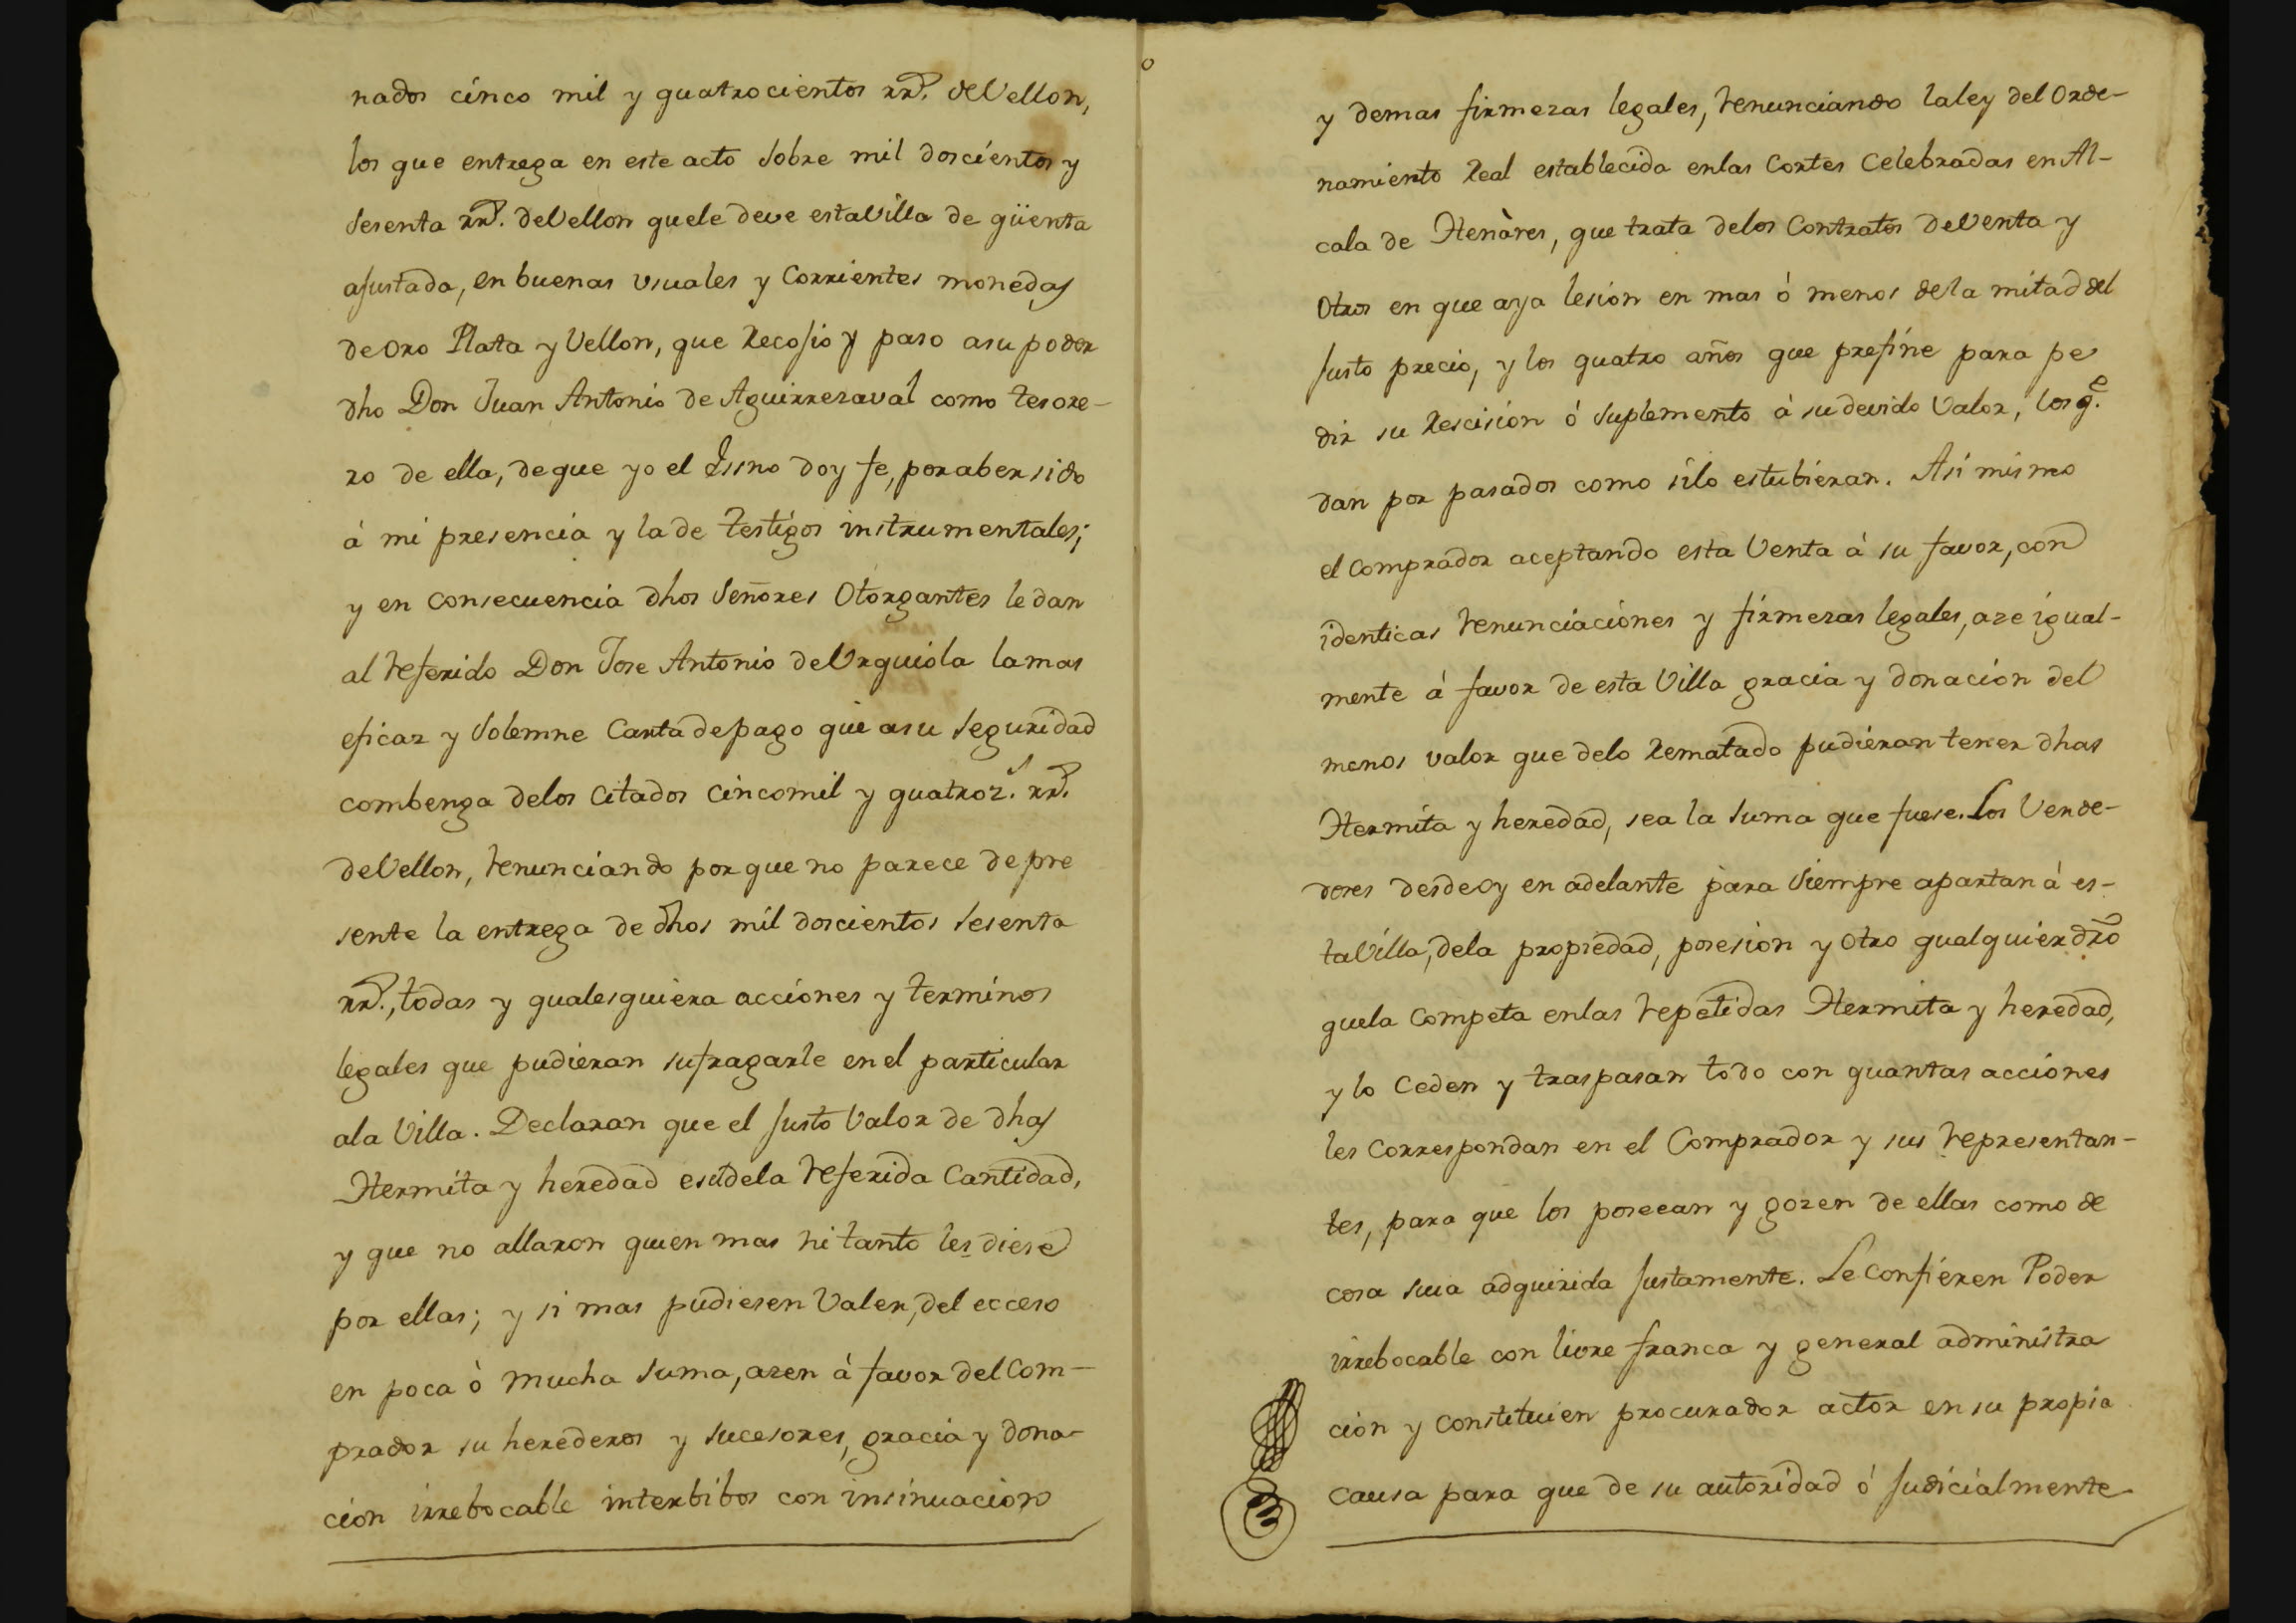 nados cinco mil y quatrocientos rr.^s de Vellon,
los que entrega en este acto sobre mil doscientos y
sesenta rr.^s de Vellon que le deve esta Villa de qüenta
ajustada, en buenas usuales y Corrientes monedas
de oro Plata y Vellon, que Recojio y paso a su poder
dho Don Juan Antonio de Aguirrezaval como tesore-
ro de ella, de que yo el Essno doy fe, por aber sido
à mi presencia y la de testigos instrumentales;
y en consecuencia dhos Señores Otorgantes le dan
al referido Don Jose Antonio de Urquiola la mas
eficaz y Solemne Carta de pago que a su seguridad
combenga de los Citados Cinco mil y quatroz.^s rr.^s
de Vellon, renunciando porque no parece de pre
sente la entrega de dhos mil doscientos sesenta
rr.^s, todas y qualesquiera acciones y terminos
legales que pudieran sufragarle en el particular
a la Villa. Declaran que el justo Valor de dhas
Hermita y heredad es el de la referida Cantidad,
y que no allaron quien mas ni tanto les diese
por ellas; y si mas pudiesen Valer, del ecceso
en poca ò mucha suma, azen à favor del Com-
prador su herederos y sucesores, gracia y dona-
cion irrebocable interbibos con insinuacion
y demas firmezas legales, renunciando la ley del Orde-
namiento Real establecida en las Cortes Celebradas en Al-
cala de Henàres, que trata de los Contratos de Venta y
Otros en que aya lesion en mas ò menos de la mitad del
justo precio, y los quatro años que prefine para pe
dir su Rescision ó suplemento à su devido Valor, los q.^e
dan por pasados como si lo estubieran. Asi mismo
el comprador aceptando esta Venta à su favor, con
identicas renunciaciones y firmezas legales, aze igual-
mente à favor de esta Villa gracia y donacion del
menos valor que de lo Rematado pudieran tener dhas
Hermita y heredad, sea la suma que fuese. Los Vende-
dores desde oy en adelante para siempre apartan à es-
ta Villa, de la propiedad, posesion y Otro qualquier dr͠o
que la Competa en las repetidas Hermita y heredad,
y lo Ceden y traspasan todo con quantas acciones
les Correspondan en el Comprador y sus representan-
tes, para que los poseean y gozen de ellas como de
cosa suia adquirida justamente. Le Confieren Poder
irrebocable con livre franca y general administra
cion y Constituien procurador actor en su propia
causa para que de su autoridad ó judicialmente